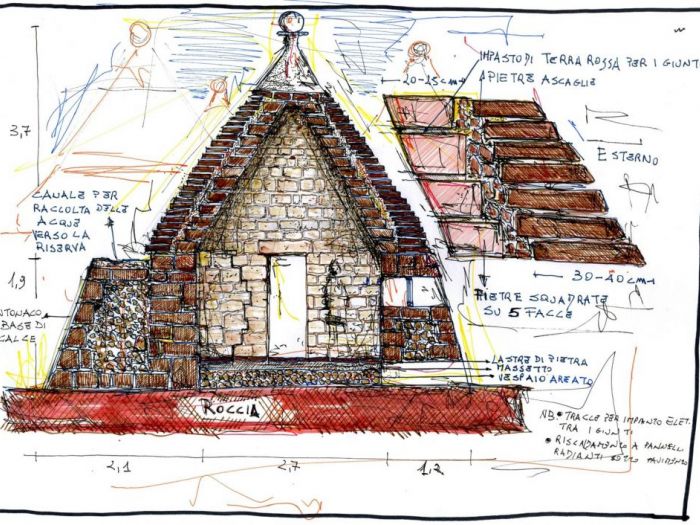 IMPASTO DI TERRA ROSSA PER I GIUNT
A PIETRE A SCAGLIE
20-25cm
ESTERNO
3,7
CANALE PER
RACCOLTA DELLE
ACQUE
VERSO LA
RISERVA
1,9
30-40cm
PIETRE SQUADRATE
SU 5 FACCE
NTONACO
BASE DI
CALCE
LASTRE DI PIETRA
MASSETTO
VESPAIO AREATO
ROCCIA
NB. • TRACCE PER IMPIANTO ELET.
TRA I GIUNTI
• RISCALDAMENTO A PANNELLI
RADIANTI SOTTO PAVIMENTO
2,1
2,7
1,2